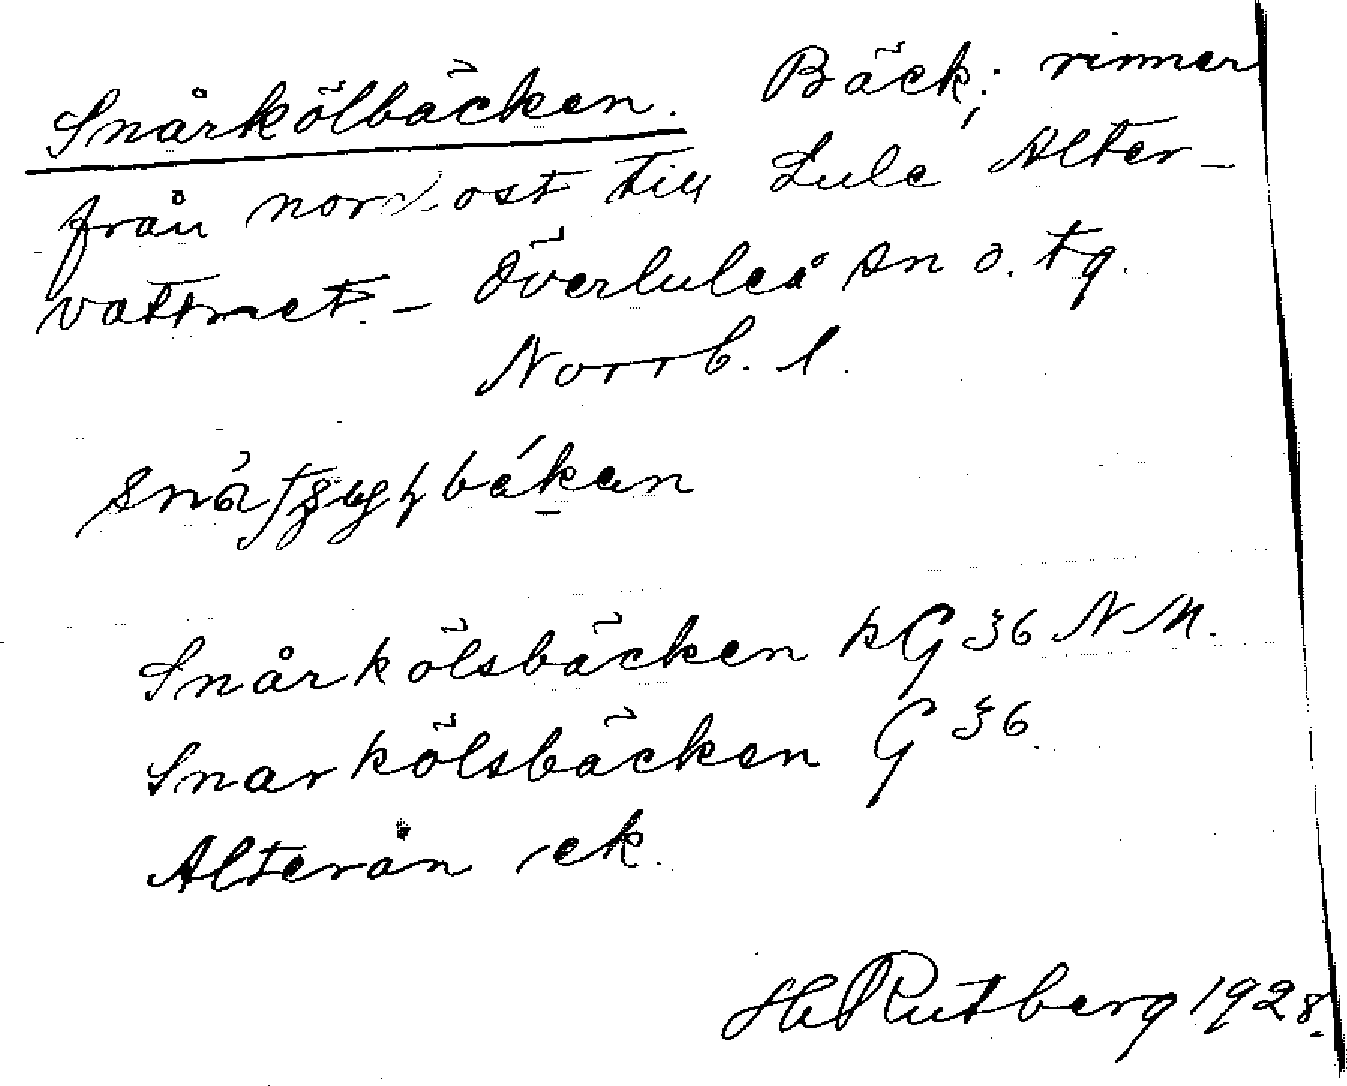 Snårkölbäcken. Bäck; rinner
från nordost till Lule Alter-
vattnet. - Överluleå sn o. tg.
Norrb. l.
Snårkölsbäcken kG 36 N M.
Snarkölsbäcken G 36.
Alterån ek.
H Rutberg 1928.